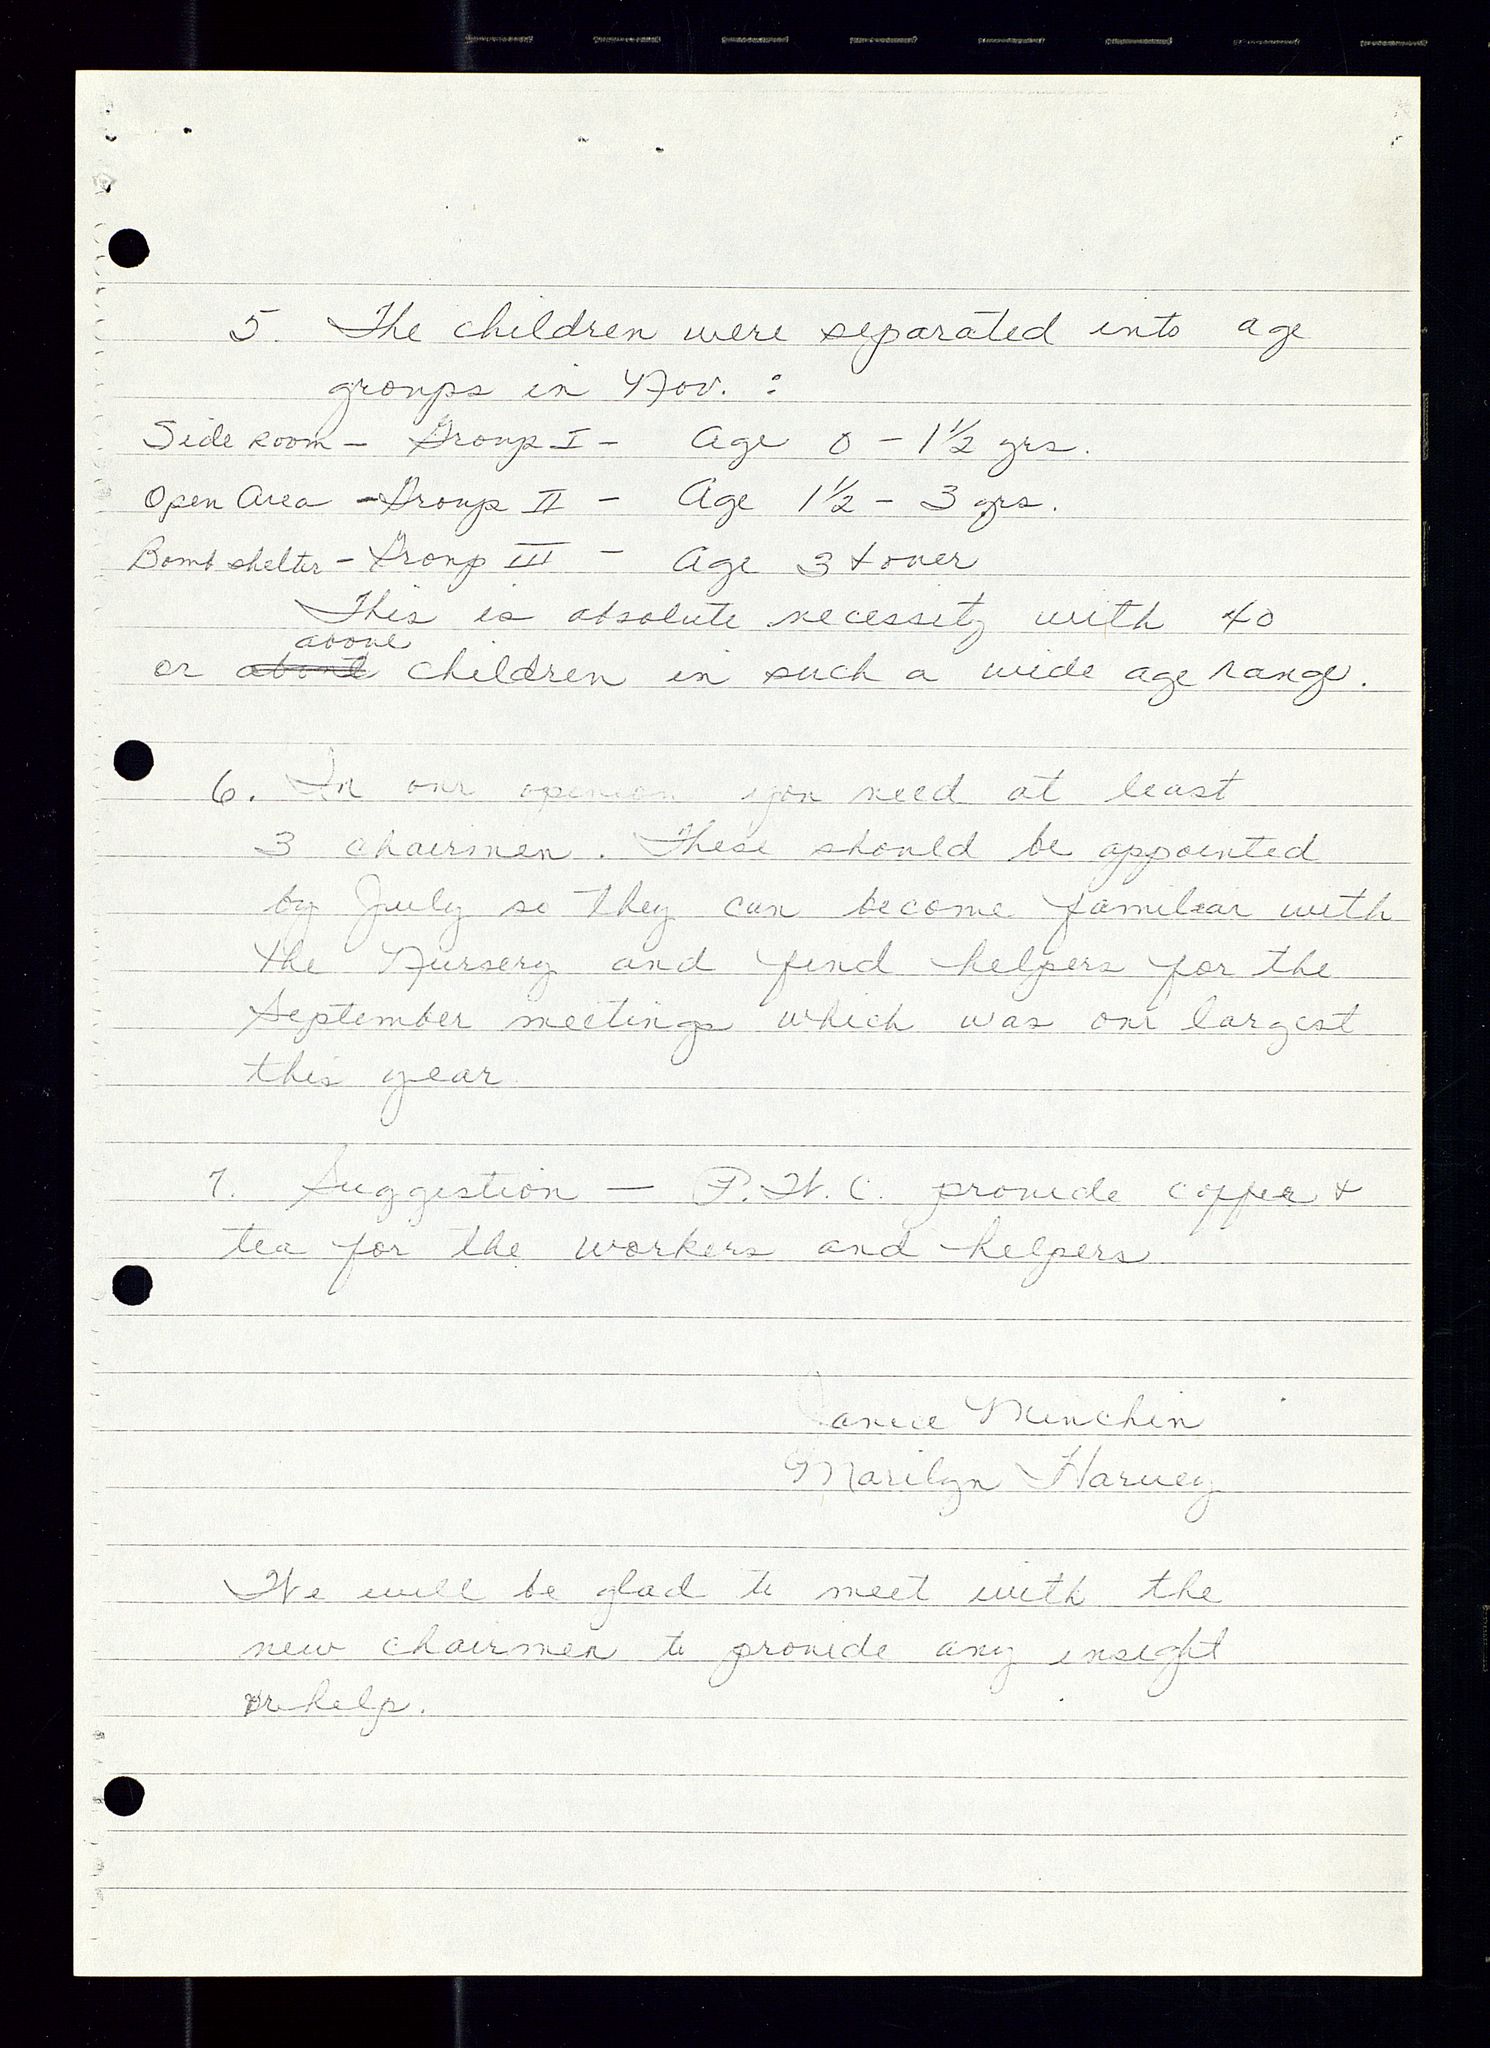 5. The children were separated into age
groups in Nov. :
Side room - Group I - Age 0 - 1 1/2 yrs.
Open Area - Group II - Age 1 1/2 - 3 yrs.
Bomb shelter - Group III - Age 3 & over
This is absolute necessity with 40
above
or about children in such a wide age range.
6. In our opinion you need at least
3 chairmen. These should be appointed
by July so they can become familiar with
the Nursery and find helpers for the
September meetings which was our largest
this year
7. Suggestion - P.W.C. provide coffee &
tea for the workers and helpers
Janice Minchin
Marilyn Harvey
We will be glad to meet with the
new chairmen to provide any insight
or help.